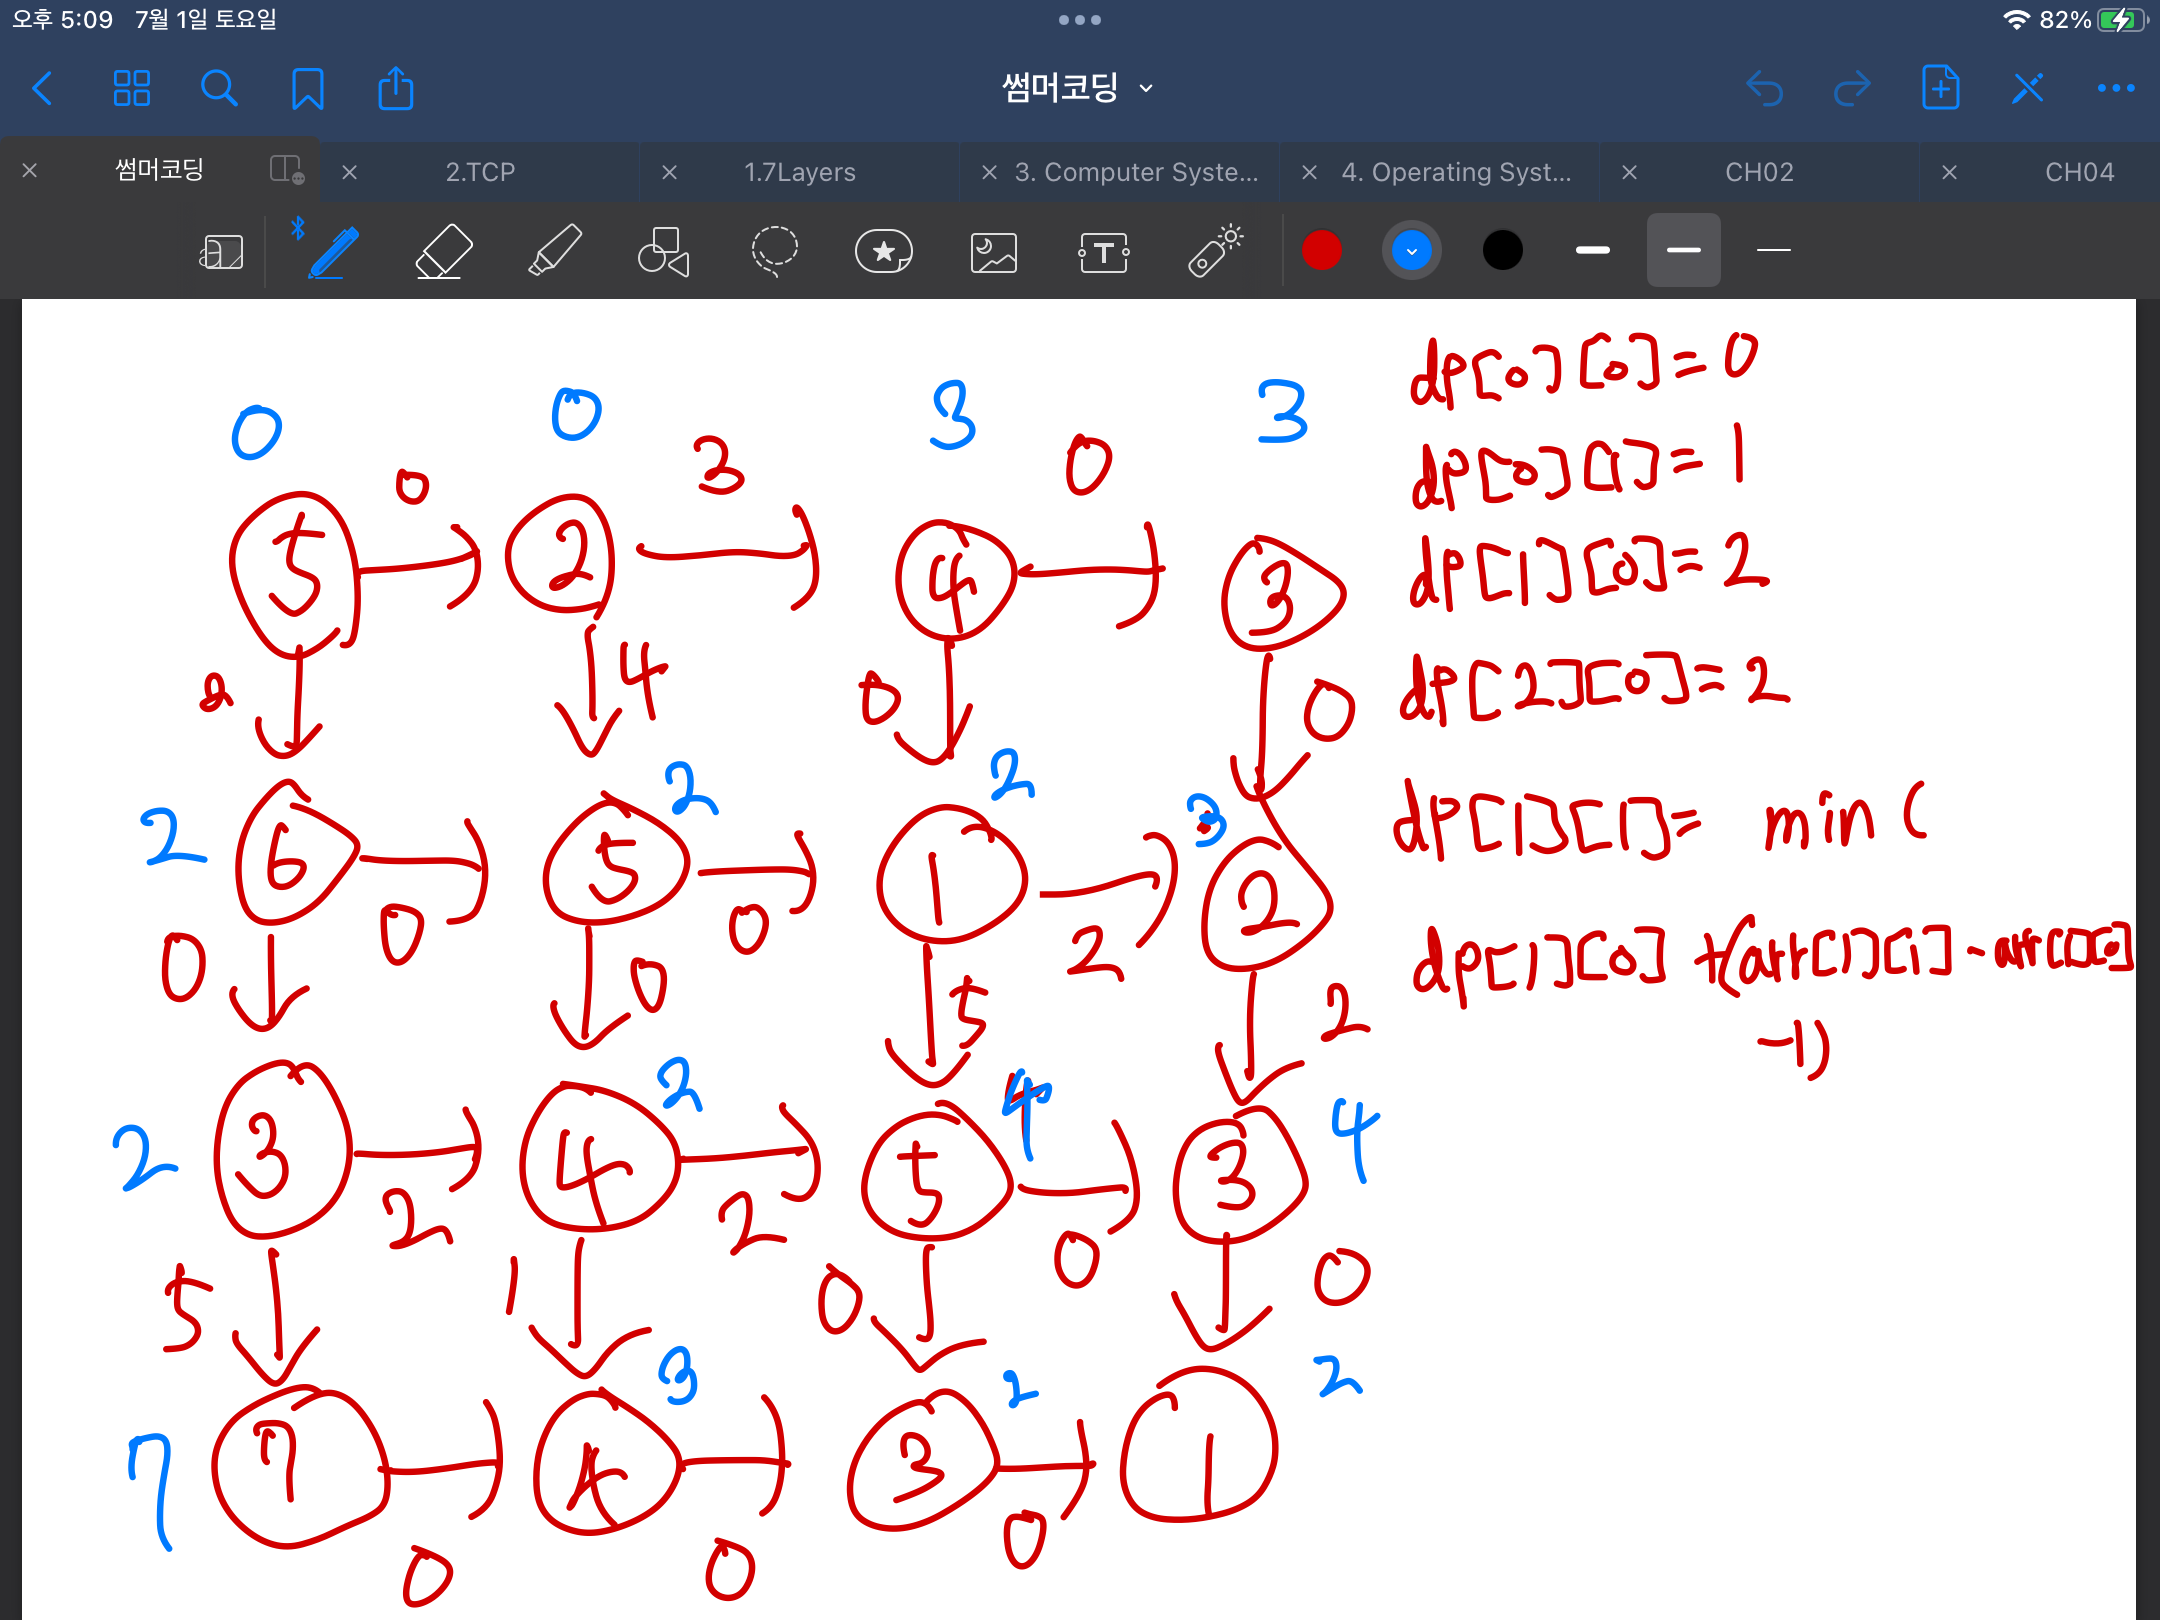 오후 5:09 7월 1일 토요일
82%
썸머코딩
썸머코딩 2.TCP 1.7Layers 3. Computer Syste... 4. Operating Syst... CH02 CH04
T
0 0 3 3
0 3 0
5 2 4 3
2 4 0 0
2 2 2 3
6 5 1 2
0 0 2
0 0 5 2
2 2 4 4
3 4 5 3
2 2 0
5 1 0 0
7 3 2 2
7 4 3 1
0 0 0
dp[0][0]=0
dp[0][1]=1
dp[1][0]=2
dp[2][0]=2
dp[1][1]= min (
dp[1][0] +(arr[1][1] - arr[1][0]
-1)